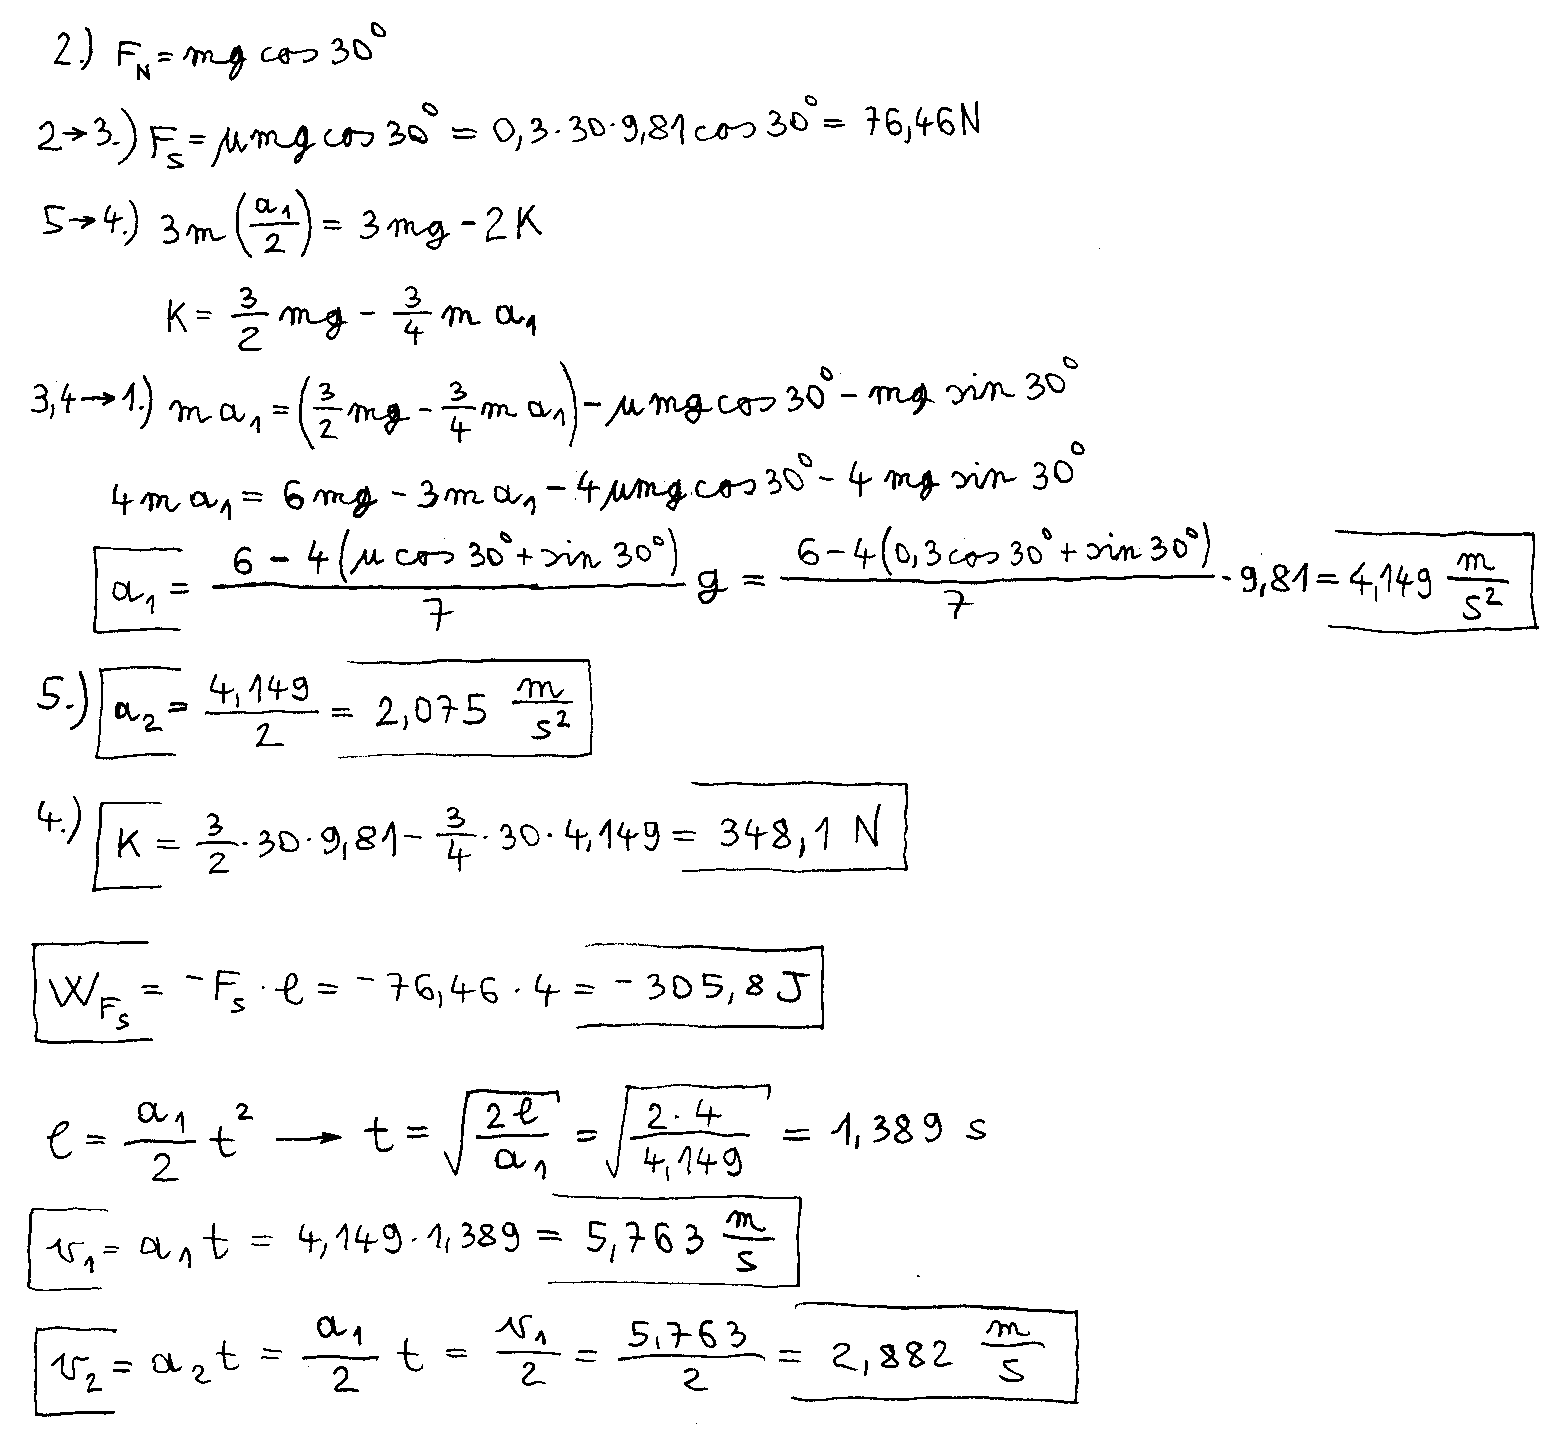 2.) F_N = mg cos 30°
2→3.) F_s = μmg cos 30° = 0,3·30·9,81 cos 30° = 76,46 N
5→4.) 3m (a₁/2) = 3mg - 2K
K = 3/2 mg - 3/4 m a₁
3,4→1.) m a₁ = (3/2 mg - 3/4 m a₁) - μmg cos 30° - mg sin 30°
4m a₁ = 6mg - 3m a₁ - 4μmg cos 30° - 4 mg sin 30°
a₁ = (6 - 4(μ cos 30° + sin 30°))/7 g = (6 - 4(0,3 cos 30° + sin 30°))/7 · 9,81 = 4,149 m/s²
5.) a₂ = 4,149/2 = 2,075 m/s²
4.) K = 3/2 · 30 · 9,81 - 3/4 · 30 · 4,149 = 348,1 N
W_Fs = -F_s · ℓ = -76,46 · 4 = -305,8 J
ℓ = a₁/2 t² → t = √(2ℓ/a₁) = √(2·4/4,149) = 1,389 s
v₁ = a₁ t = 4,149 · 1,389 = 5,763 m/s
v₂ = a₂ t = a₁/2 t = v₁/2 = 5,763/2 = 2,882 m/s